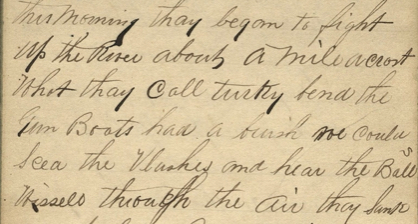 this Morning thay began to fight
up the River about a mile acrost
Whot thay Call turky bend the
Gun Boats had a brush we Could
Seea the Flashes and hear the Balls
Wissels through the air thay Sunk